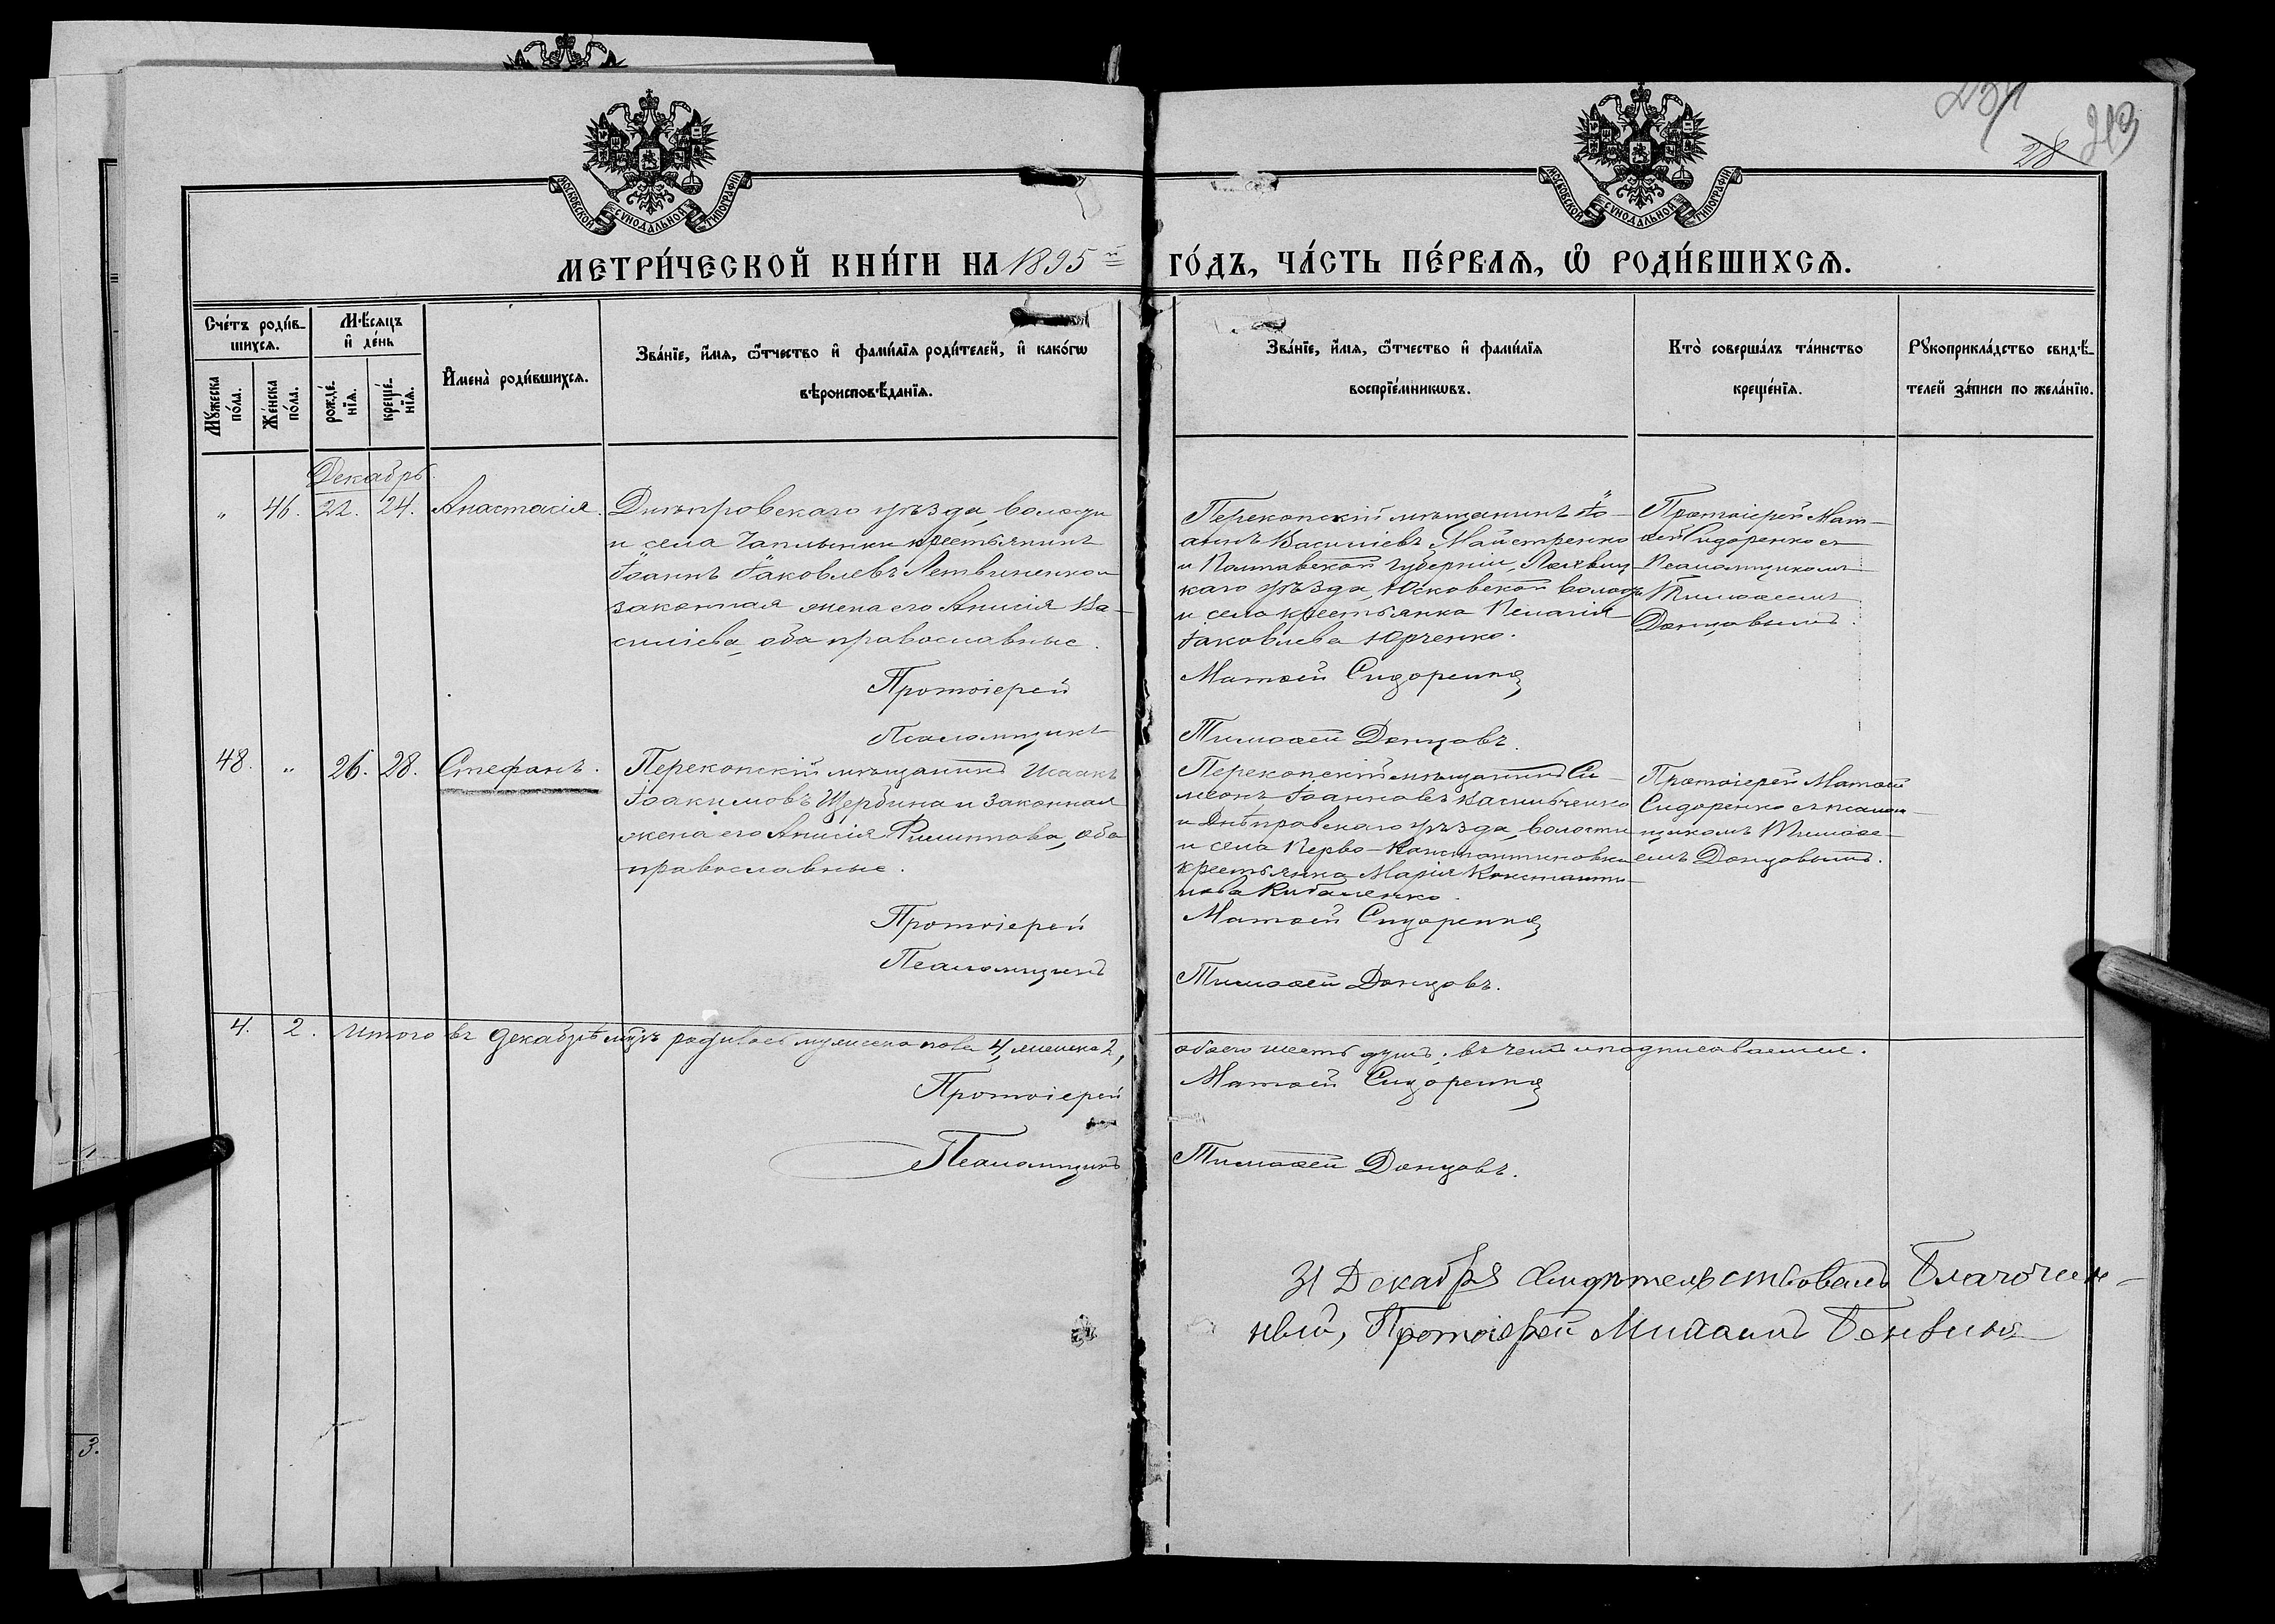 МОСКОВСКОЙ СѴНОДАЛЬНОЙ ТИПОГРАФІИ
МОСКОВСКОЙ СѴНОДАЛЬНОЙ ТИПОГРАФІИ
28
МЕТРИ́ЧЕСКОЙ КНИ́ГИ НА 1895 й ГО́ДЪ, ЧА́СТЬ ПЕ́РВАѦ, Ѡ҆ РОДИ́ВШИХСѦ.
Сче́тъ роди́в-
шихсѧ.
Мѣ́сѧцъ
и҆ де́нь
Мꙋ́жеска
по́ла.
Же́нска
по́ла.
рожде́-
нїѧ.
креще́-
нїѧ.
И҆мена̀ роди́вшихсѧ.
Зва́нїе, и҆́мѧ, ѻ҆́тчество и҆ фами́лїѧ роди́телей, и҆ како́гѡ
вѣроисповѣ́данїѧ.
Зва́нїе, и҆́мѧ, ѻ҆́тчество и҆ фами́лїѧ
воспрїе́мникѡвъ.
Кто̀ соверша́лъ та́инство
креще́нїѧ.
Рꙋкоприкла́дство свидѣ́-
телей за́писи по жела́нїю.
Декабрь.
" 46. 22. 24. Анастасія.
Днѣпровскаго уѣзда, волости
и села Чаплынки крестьянинъ
Іоаннъ Іаковлевъ Летвиненко и
законная жена его Анисія Ва-
силіева, оба православные.
Протоіерей
Псаломщикъ
Перекопскій мѣщанинъ Іо-
аннъ Василіевъ Майстренко
и Полтавской губерніи,
каго уѣзда Юсковской волости
и села крестьянка Пелагія
Іаковлева Юрченко.
Матѳей Сидоренко
Тимоѳей Донцовъ.
Протоіерей Мат-
ѳей Сидоренко съ
Псаломщикомъ
Тимоѳеемъ
Донцовымъ.
48. " 26. 28. Стефанъ.
Перекопскій мѣщанинъ Исаакъ
Іоакимовъ Щербина и законная
жена его Анисія Филиппова, оба
православные.
Протоіерей
Псаломщикъ
Перекопскій мѣщанинъ Си-
меонъ Іоанновъ
и Днѣпровскаго уѣзда, волости
и села Перво-Константиновки
крестьянка Марія Константи-
нова
Матѳей Сидоренко
Тимоѳей Донцовъ.
Протоіерей Матѳей
Сидоренко съ псалом-
щикомъ Тимоѳе-
емъ Донцовымъ.
4. 2. Итого въ Декабрѣ мцѣ родилось мужеска пола 4, женска 2, обоего шесть душъ; въ чемъ и подписываемся.
Протоіерей Матѳей Сидоренко
Псаломщикъ Тимоѳей Донцовъ.
31 Декабря свидѣтельствовалъ Благочин-
ный, Протоіерей Михаилъ
3.